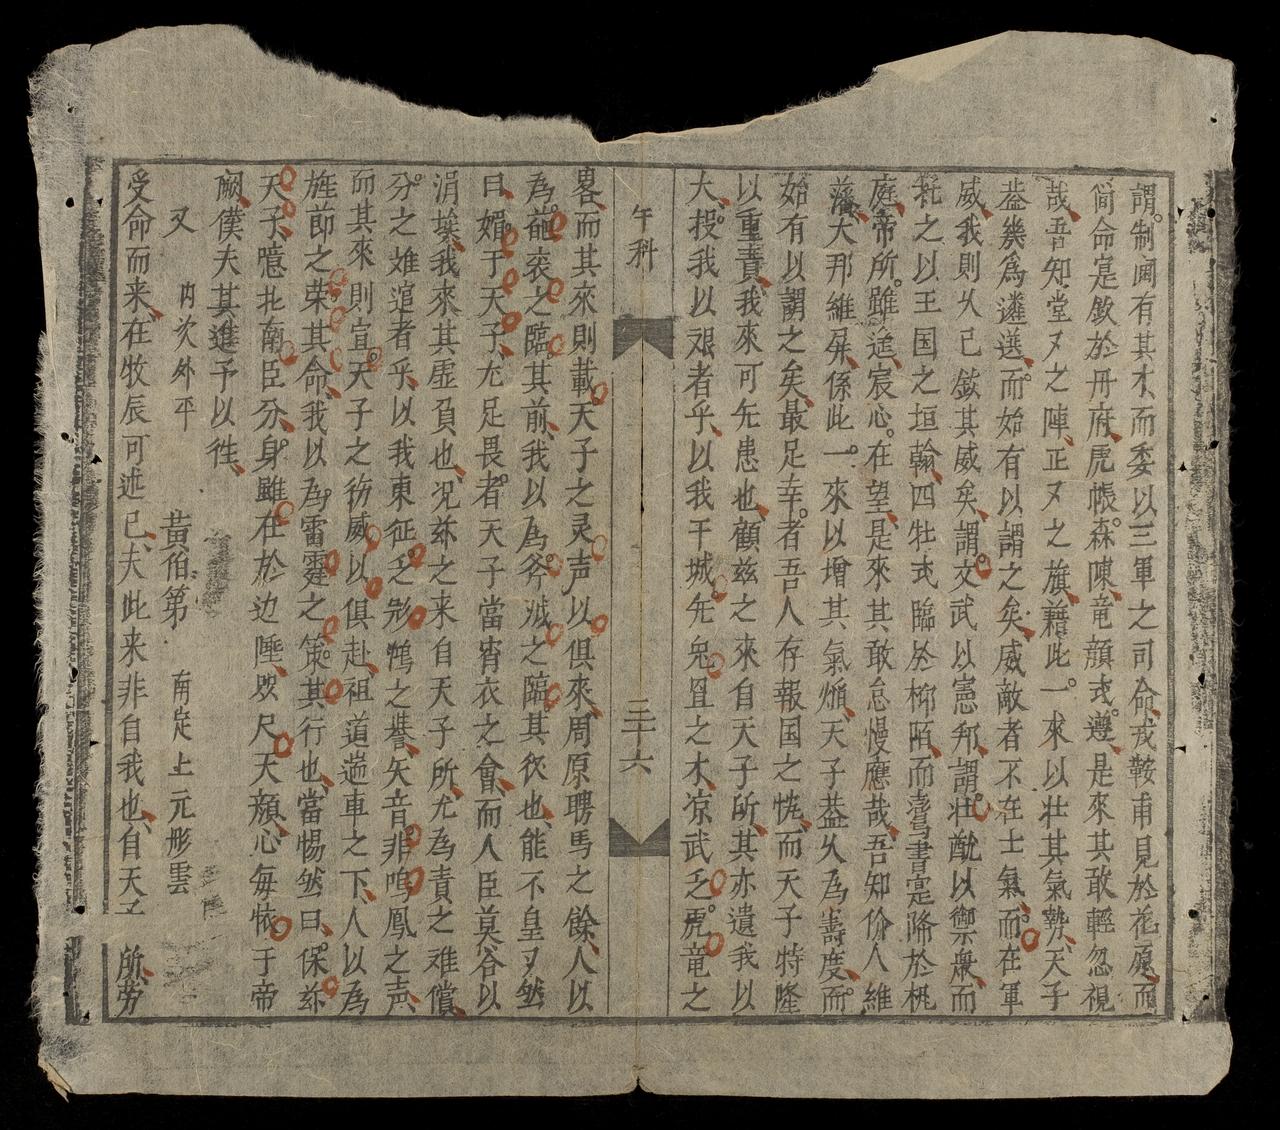 謂制閫有其才而委以三軍之司命戎鞍甫見於花廕而
簡命寔欽於丹府虎帳森陳竜顔式遵是來其敢輕忽視
哉吾知堂又之陣正又之旗藉此一來以壯其氣勢天子
益幾爲遴選而始有以謂之矣威敵者不在士氣而在軍
威我則久已欽其威矣謂文武以憲邦謂壮猷以禦衆而
牝之以王国之垣翰四牡式臨於柳陌而蕚書寔降於桃
庭帝所雖遠宸心在望是來其敢怠慢應哉吾知价人維
藩大邦維屏係此一來以增其氣熖天子益久爲壽度而
始有以謂之矣最足幸者吾人存報国之忱而天子特隆
以重責我來可无患也顧兹之來自天子所其亦遺我以
大投我以艰者乎以我干城先兔罝之木凉武乏虎竜之
午科
三十六
畧而其來則載天子之灵声以俱來周原聘馬之餘人以
為施裘之臨其前我以為斧泧之臨其後也能不皇又然
曰媚于天子尤足畏者天子當宵衣之會而人臣莫咨以
涓埃我來其虚負也况茲之来自天子所尤為責之难償
分之难逭者乎以我東征乏彩鴻之誉矢音非鳴鳳之声
而其來則宣天子之彷威以俱赴祖道遄車之下人以為
旌節之荣其命我以為雷霆之策其行也當惕然曰保茲
天子噫北南臣分身雖在於边陲咫尺天顔心每依于帝
闕僕夫其進予以徃
又 内次外平 黄伯第 南定上元形雲
受命而来在牧辰可述已夫此来非自我也自天子所劳